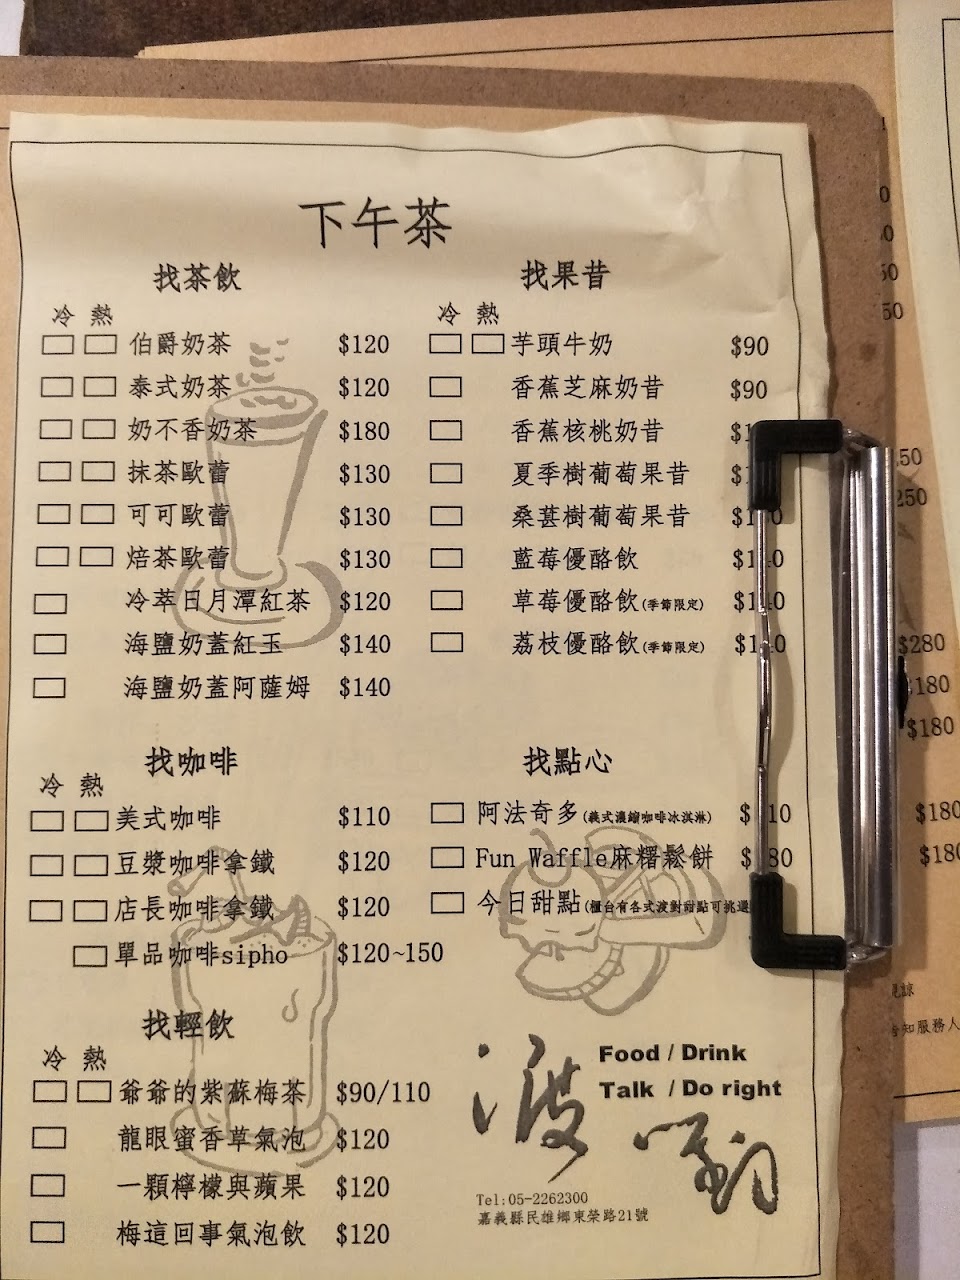 下午茶
找茶飲
冷 熱
伯爵奶茶 $120
泰式奶茶 $120
奶不香奶茶 $180
抹茶歐蕾 $130
可可歐蕾 $130
焙茶歐蕾 $130
冷萃日月潭紅茶 $120
海鹽奶蓋紅玉 $140
海鹽奶蓋阿薩姆 $140
找果昔
冷 熱
芋頭牛奶 $90
香蕉芝麻奶昔 $90
香蕉核桃奶昔
夏季樹葡萄果昔
桑葚樹葡萄果昔
藍莓優酪飲
草莓優酪飲(季節限定)
荔枝優酪飲(季節限定)
找咖啡
冷 熱
美式咖啡 $110
豆漿咖啡拿鐵 $120
店長咖啡拿鐵 $120
單品咖啡sipho $120~150
找點心
阿法奇多(義式濃縮咖啡冰淇淋)
Fun Waffle麻糬鬆餅
今日甜點(櫃台有各式波對甜點可挑選
找輕飲
冷 熱
爺爺的紫蘇梅茶 $90/110
龍眼蜜香草氣泡 $120
一顆檸檬與蘋果 $120
梅這回事氣泡飲 $120
Food / Drink
Talk / Do right
波對
Tel:05-2262300
嘉義縣民雄鄉東榮路21號
250
$280
$180
$180
$180
告知服務人